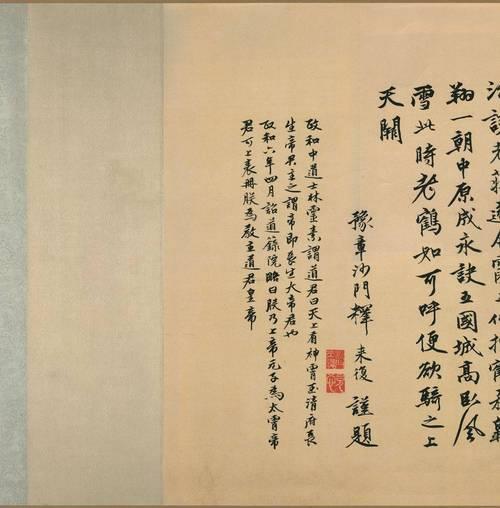 翔一朝中原成永訣五國城高臥風
雪此時老鶴如可呼便欲騎之上
天闕
豫章沙門釋 来復 謹題
政和中道士林靈素謂道君曰天上有神霄玉清府長
生帝君主之謂帝即長生大帝君也
政和六年四月詔道錄院略曰朕乃上帝元子為太霄帝
君可上表冊朕為教主道君皇帝